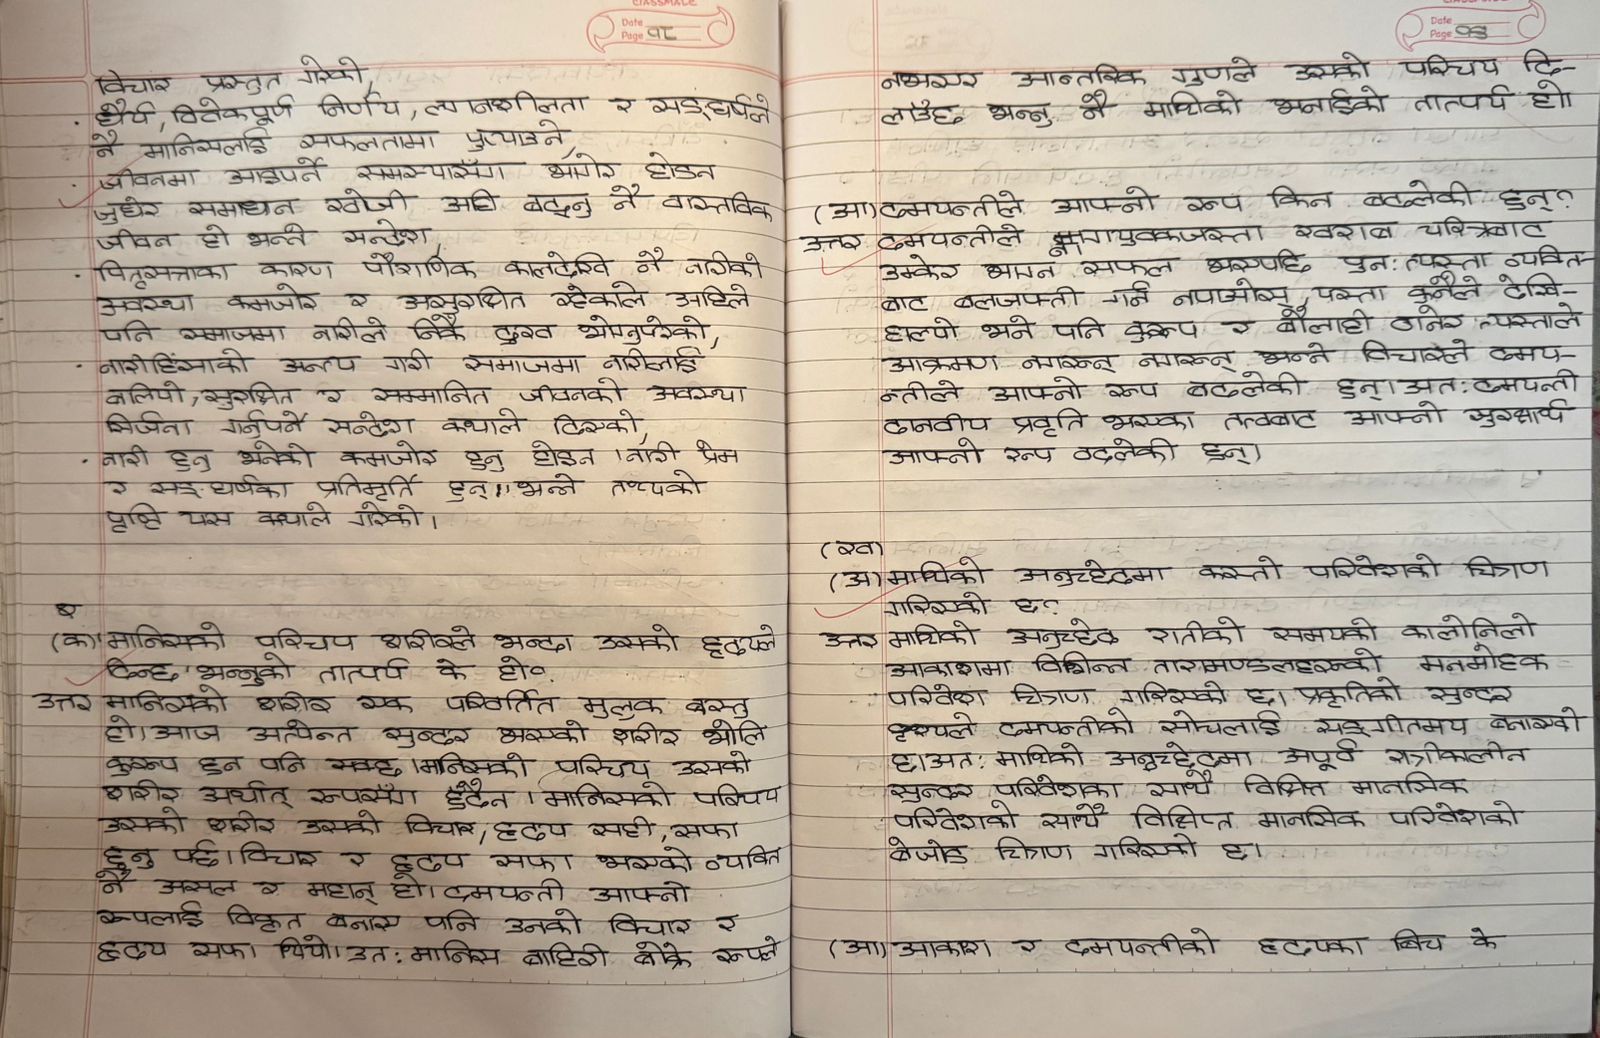 CLASSMATE
Date
Page १८
विचार प्रस्तुत गरेको,
· धैर्य, विवेकपूर्ण निर्णय, त्यागशीलता र सङ्घर्षले
नै मानिसलाई सफलतामा पुर्‍याउने,
· जीवनमा आइपर्ने समस्यासँग भागेर होइन
जुधेर समाधान खोजी अघि बढ्नु नै वास्तविक
जीवन हो भन्ने सन्देश,
· पितृसत्ताका कारण पौराणिक कालदेखि नै नारीको
अवस्था कमजोर र असुरक्षित रहेकाले अहिले
पनि समाजमा नारीले निकै दुःख भोग्नुपरेको,
· नारीहिंसाको अन्त्य गरी समाजमा नारीलाई
बलियो, सुरक्षित र सम्मानित जीवनको अवस्था
सिर्जना गर्नुपर्ने सन्देश कथाले दिएको,
· नारी हुनु भनेको कमजोर हुनु होइन । नारी प्रेम
र सङ्घर्षका प्रतिमूर्ति हुन् ।, भन्ने तथ्यको
पुष्टि यस कथाले गरेको ।
(क) मानिसको परिचय शरीरले भन्दा उसको हृदयले
दिन्छ' भन्नुको तात्पर्य के हो?
उत्तर मानिसको शरीर एक परिवर्तित मुलुक वस्तु
हो । आज अत्यन्त सुन्दर भएको शरीर भोलि
कुरूप हुन पनि सक्छ । मानिसको परिचय उसको
शरीर अर्थात् रूपसँग हुँदैन । मानिसको परिचय
उसको शरीर उसको विचार, हृदय सही, सफा
हुनु पर्छ । विचार र हृदय सफा भएको व्यक्ति
नै असल र महान् हो । दमयन्ती आफ्नो
रूपलाई विकृत बनाए पनि उनको विचार र
हृदय सफा थियो । उत: मानिस बाहिरी बोक्रे रूपले
Date
Page
नभएर आन्तरिक गुणले उसको परिचय दि-
लाउँछ भन्नु नै माथिको भनाईको तात्पर्य हो ।
(आ) दमयन्तीले आफ्नो रूप किन बदलेकी हुन्?
उत्तर दमयन्तीले खराब चरित्रबाट
उम्केर भाग्न सफल भएपछि पुन: त्यस्ता व्यक्ति-
बाट बलजफ्ती गर्न नपाओस्, यस्ता कुनैले देखि-
हाल्यो भने पनि कुरूप र बौलाही ठानेर त्यस्ताले
आक्रमण नगरून् नगरून् भन्ने विचारले दमय-
न्तीले आफ्नो रूप बदलेकी हुन् । अत: दमयन्ती
दानवीय प्रवृति भएका तत्वबाट आफ्नो सुरक्षार्थ
आफ्नो रूप बदलेकी हुन् ।
(ख)
(अ) माथिको अनुच्छेदमा कस्तो परिवेशको चित्रण
गरिएको छ?
उत्तर माथिको अनुच्छेद रातीको समयको कालोनिलो
आकाशमा विभिन्न तारामण्डलहरूको मनमोहक
परिवेश चित्रण गरिएको छ । प्रकृतिको सुन्दर
दृश्यले दमयन्तीको सोचलाई सङ्गीतमय बनाएको
छ । अत: माथिको अनुच्छेदमा अपूर्व रात्रीकालीन
सुन्दर परिवेशका साथै विक्षिप्त मानसिक
परिवेशको साथै विक्षिप्त मानसिक परिवेशको
बेजोड चित्रण गरिएको छ ।
(आ) आकाश र दमयन्तीको हृदयका बिच के